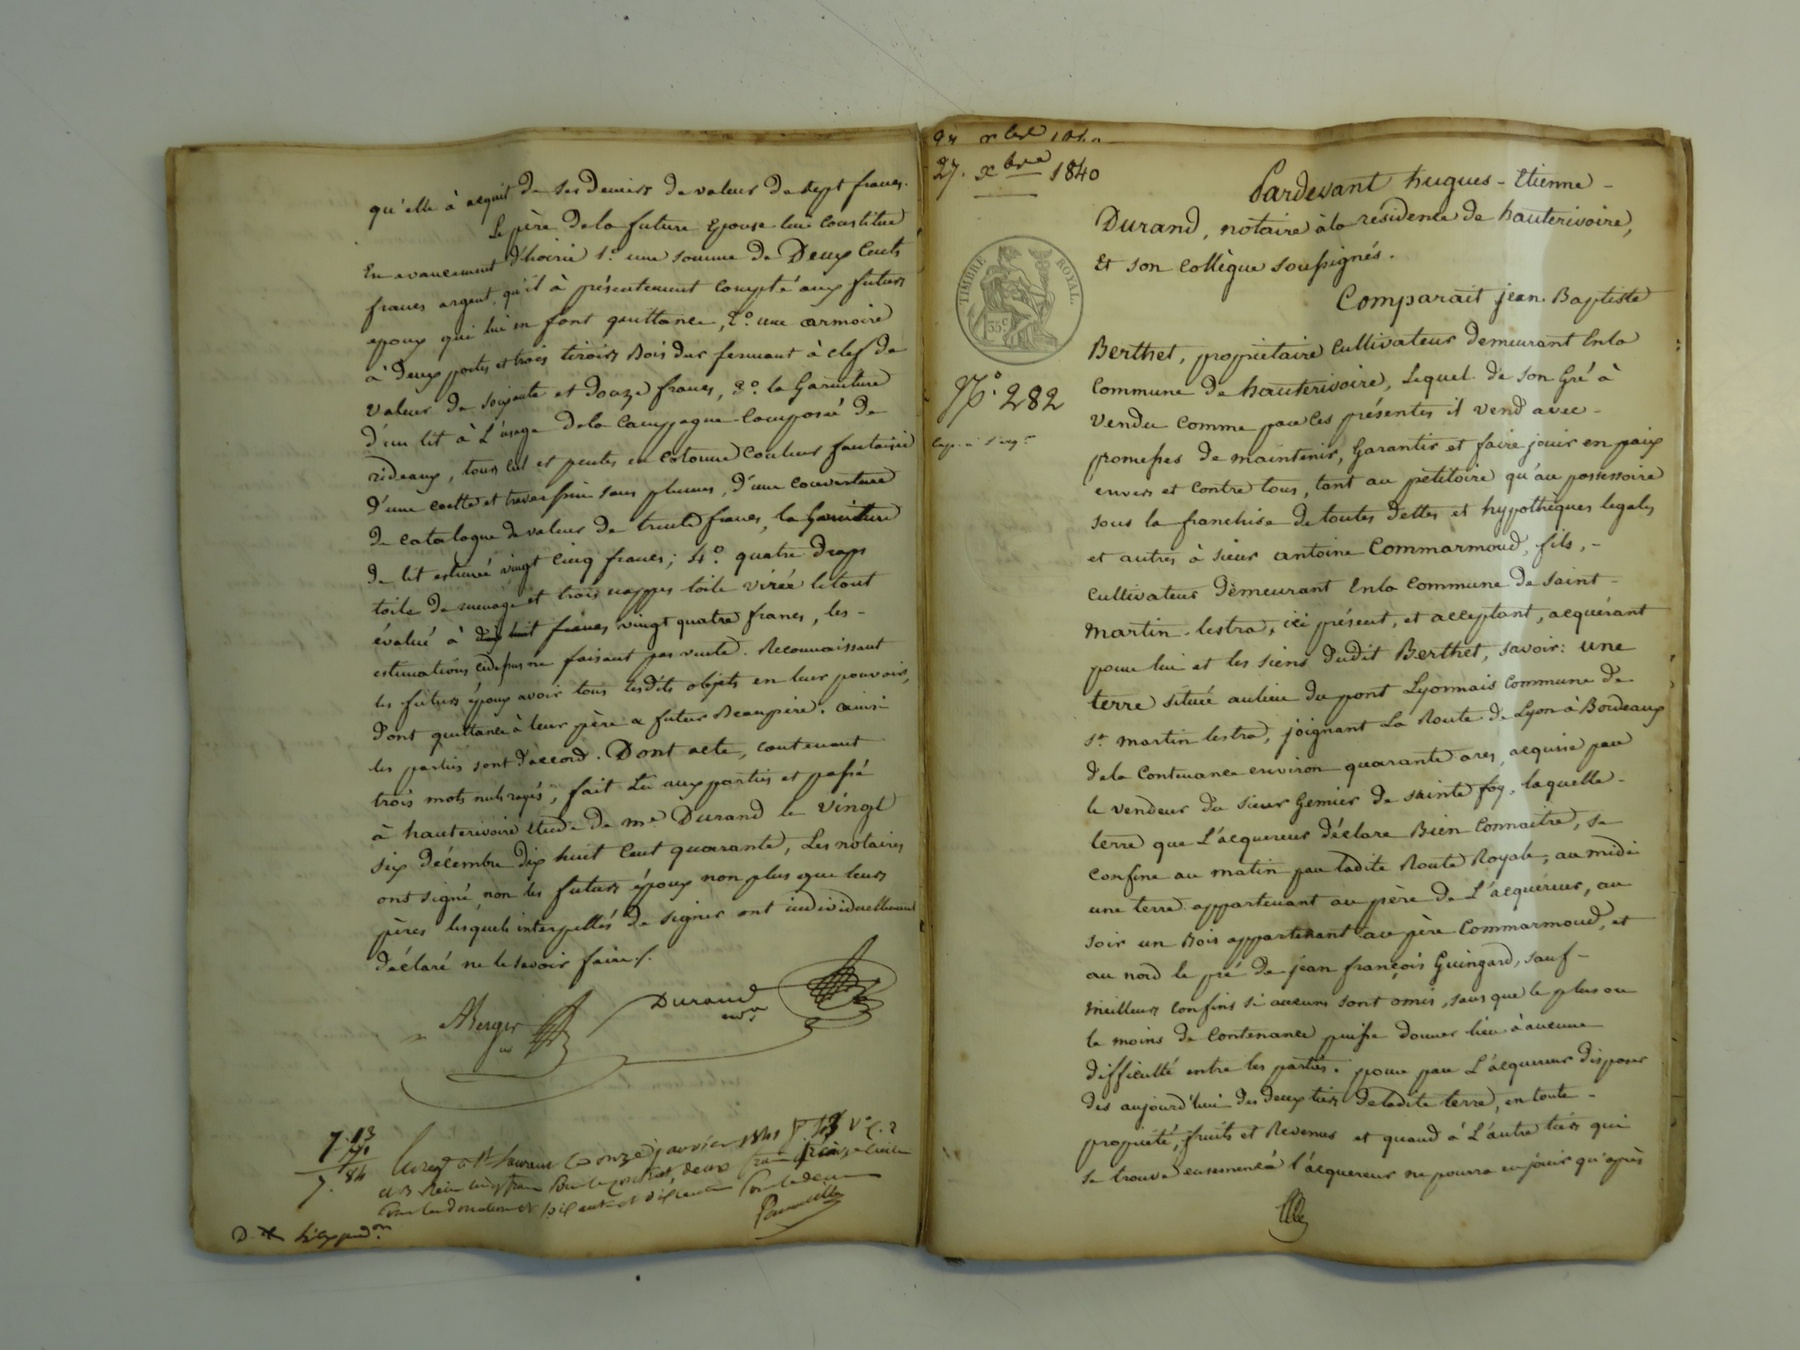 qu'elle à acquit de ses deniers de valeur de sept francs.
Le père de la future épouse lui constitue
En avancement d'hoirie 1.° une somme de Deux Cents
francs argent, qu'il à présentement compté aux futurs
epoux qui lui en font quittance, 2.° une armoire
à Deux portes et trois tiroirs Bois dur fermant à clef de
valeur de soixante et douze francs, 3.° la Garniture
d'un lit à L'usage de la Campagne Composée de
rideaux, tour lit et pentes en cotonne Couleur fantaisie
d'une coette et traversin sans plumes, d'une couverture
de catalogne de valeur de trente francs, la Garniture
de lit estimée vingt cinq francs; 4.° quatre draps
toile de menage et trois nappes toile virée le tout
évalué à dix huit francs vingt quatre francs, les -
estimations cidessus ne faisant pas vente. Reconnaissant
les futurs époux avoir tous lesdits objets en leur pouvoir,
Dont quittance à leur père & futur Beaupère. ainsi
les parties sont d'accord. Dont acte, contenant
trois mots nuls rayés, fait Lu aux parties et passé
à hauterivoire Etude de me Durand le vingt
six décembre dix huit Cent quarante, Les notaires
ont signé non les futurs époux non plus que leurs
pères lesquels interpellés de signer ont individuellement
déclaré ne le savoir faire /.
ABerger
Durand
nore
7.13
71
7.84
Enregt à St Laurent le onze janvier 1841 f
27. xbre 1840
27. xbre 1840
Pardevant hugues - Etienne -
Durand, notaire à la résidence de hauterivoire,
Et son Collègue soussignés.
TIMBRE ROYAL.
35c
Comparait jean Baptiste
Berthet, propriétaire Cultivateur demeurant En la
N.° 282
Commune de hauterivoire, Lequel de son Gré à
Vendu Comme par ces présentes il vend avec -
promesses de maintenir, Garantir et faire jouir en paix
envers et Contre tous, tant au pétitoire qu'au possessoire
sous la franchise de toutes Dettes et hypothèques legales
et autres à sieur antoine Commarmoud, fils, -
Cultivateur Demeurant En la Commune de Saint -
martin - lestra, ici présent, et acceptant, acquérant
pour lui et les siens dudit Berthet, savoir: une
terre située au lieu du pont Lyonnais commune de
St. martin lestra, joignant La Route de Lyon à Bordeaux
de la Contenance environ quarante ares, acquise par
le vendeur du sieur Gemier de sainte foy, laquelle -
terre que L'acquereur déclare Bien Connaitre, se
Confine au matin par ladite Route Royale, au midi
une terre appartenant au père de L'acquéreur, au
soir un Bois appartenant au père Commarmoud, et
au nord le pré de jean françois Guingard, sauf -
meilleurs Confins si aucuns sont omis, sans que le plus ou
le moins de Contenance puisse donner lieu à aucune
difficulté entre les parties. pour par L'acquereur disposer
dès aujourd'hui des deux tiers de ladite terre, en toute -
propriété, fruits et Revenus et quand à L'autre tiers qui
se trouve ensemencé l'acquereur ne pourra en jouir qu'après